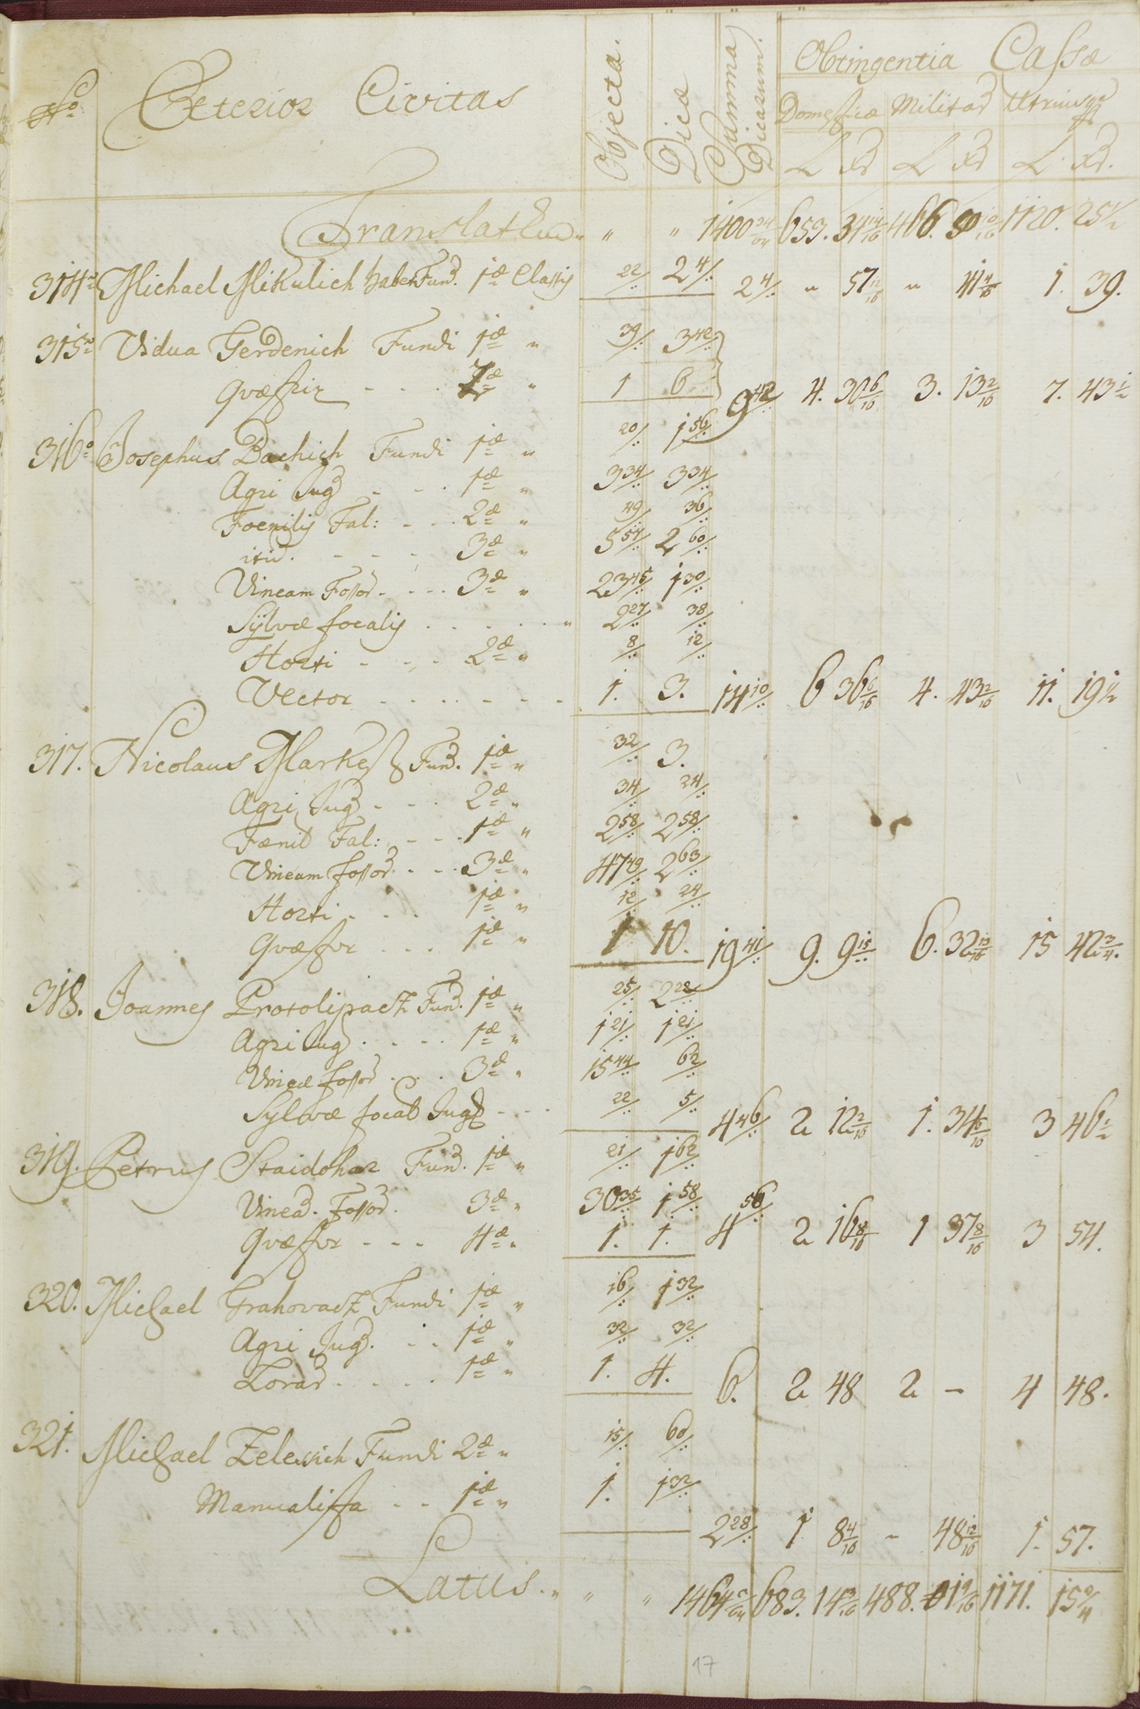 Nо Exterior Civitas Objecta. Dicæ Summa Dicarum. Obtingentia Cassæ
Domesticæ Militar Utriusqe
L Xr L Xr L. Xr.
Translatum " " 1400 34/64 653. 34 14/16 466. 1120. 25 1/2
314to Michael Mikulich habet Fund. 1æ Classis 22/: 2 4/: 2 4/: " 57 " 41 4/16 1. 39.
315to Vidua Gerdenich Fundi 1æ " 39/: 3 42/:
Qvæstus - - - 7æ " 1 6 9 42/: 4. 30 6/16 3. 13 2/16 7. 43 1/2
316o Josephus Dachich Fundi 1æ " 20/: 1 56/:
Agri Jug - - - 1æ " 3 34/: 3 34/:
Foenilis Fal: - - - 2æ " 49/: 36/:
itid. - - - - 3æ " 5 57/: 2 60/:
Vineam Fossor - - - - 3æ " 23 45/: 1 30/:
Sylvæ focalis . . . . . " 2 27/: 38/:
Horti - - - 2æ " 8/: 12/:
Vector - - - - - - - 1. 3. 14 10/: 6 36 6/16 4. 43 2/16 11. 19 1/2
317. Nicolaus Markess Fund. 1æ " 32/: 3.
Agri Jug - - - 2æ " 34/: 24/:
Fænil Fal: - - - 1æ " 2 58/: 2 58/:
Vineam fossor - - - 3æ " 47 49/: 2 63/:
Horti - - - 1æ " 12/: 24/:
Qvæstor - - - 1æ " 1 10. 19 41/: 9. 9 15/: 6. 32 13/16 15 42 3/4.
318. Joannes Protolipacz Fund. 1æ " 25/: 2 22/:
Agri Jug . . . . 1æ " 1 21/: 1 21/:
Vineæ fossor . . . 3æ " 15 44/: 62/:
Sylvæ focal Jug - - - 22/: 5/: 4 46/: 2 12 2/16 1. 34 6/16 3 46 1/2
319. Petrus Staidohar Fund. 1æ " 21/: 1 62/:
Vinea. Fossor. 3æ " 30 35/: 1 58/:
Qvæstor - - - 4æ " 1. 1. 4 56/: 2 16 8/16 1 37 8/16 3 54.
320. Michael Grahovacz Fundi 1æ " 16/: 1 32/:
Agri Jug. - - 1æ " 32/: 32/:
Lorar . . . . . 1æ " 1. 4. 6. 2 48 2 - 4 48.
321. Michael Zelevich Fundi 2æ " 15/: 60/:
Manualista - - 1æ " 1. 1 32/: 2 28/: 1 8 4/16 - 48 12/16 1. 57.
Latus. " " " 1464 683. 14 488. 1171. 15
17